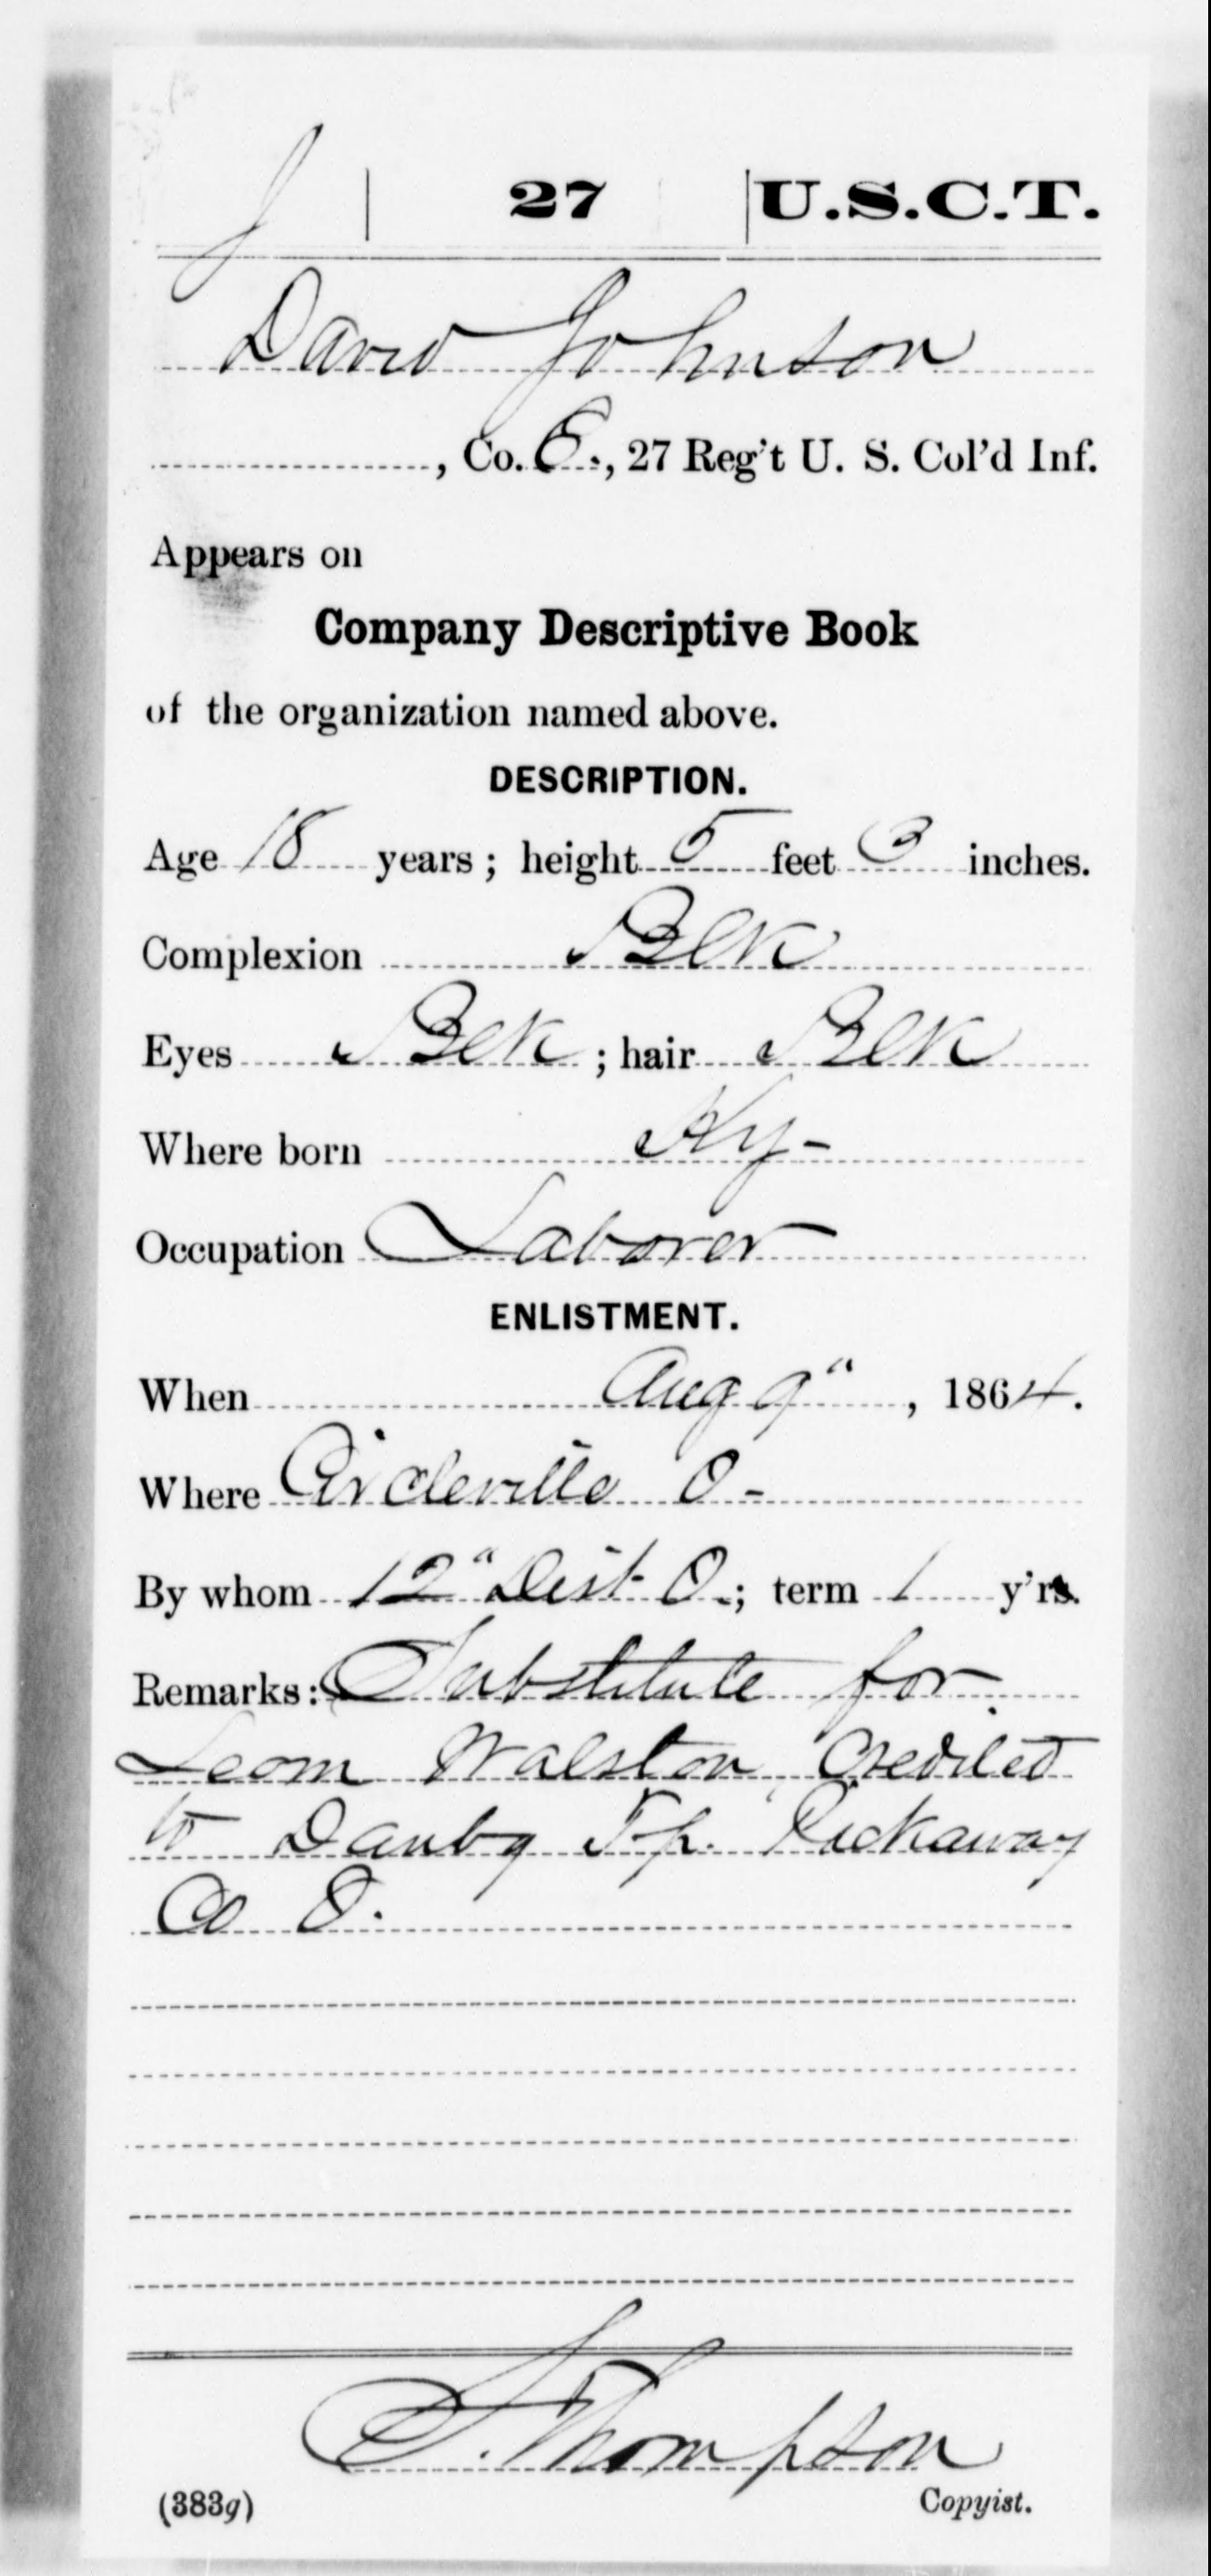 J | 27 | U.S.C.T.
David Johnson
, Co. E., 27 Reg't U. S. Col'd Inf.
Appears on
Company Descriptive Book
of the organization named above.
DESCRIPTION.
Age 18 years; height 5 feet 3 inches.
Complexion Blk
Eyes Blk; hair Blk
Where born Ky-
Occupation Laborer
ENLISTMENT.
When Aug 9", 1864.
Where Circleville O-
By whom 12" Dist. O.; term 1 y'rs.
Remarks: Substitute for
Walston Credited
to Danby Tp. Pickaway
Co O.
S. Thompson
(383g) Copyist.